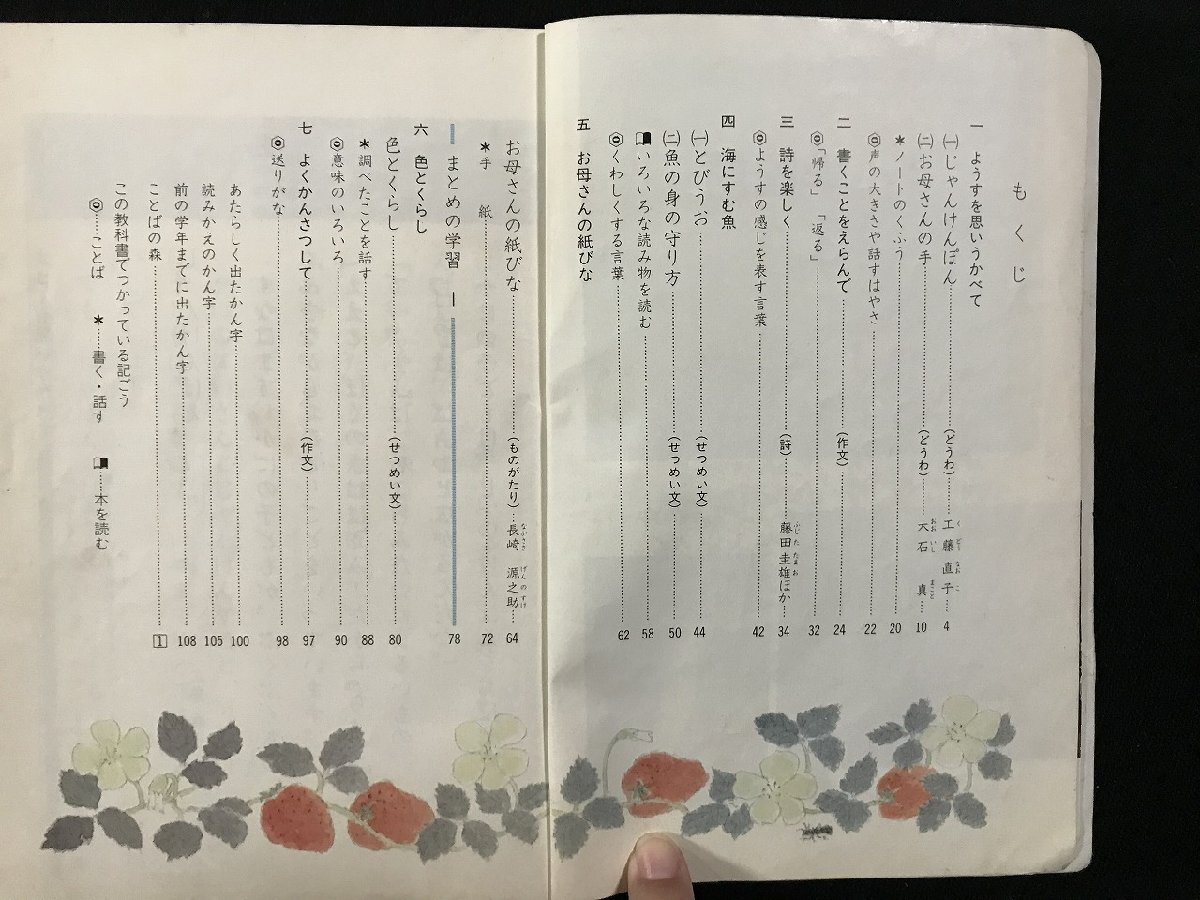 もくじ
一 ようすを思いうかべて
㈠じゃんけんぽん……(どうわ)……工藤直子…… 4
くどうなおこ
㈡お母さんの手……(どうわ)……大石 真…… 10
おおいし まこと
＊ノートのくふう…… 20
◎声の大きさや話すはやさ…… 22
二 書くことをえらんで……(作文)…… 24
◎「帰る」「返る」…… 32
三 詩を楽しく……(詩)……藤田圭雄ほか…… 34
ふじた たまお
◎ようすの感じを表す言葉…… 42
四 海にすむ魚
㈠とびうお……(せつめい文)…… 44
㈡魚の身の守り方……(せつめい文)…… 50
いろいろな読み物を読む…… 58
◎くわしくする言葉…… 62
五 お母さんの紙びな
お母さんの紙びな……(ものがたり)……長崎 源之助…… 64
ながさき げんのすけ
＊手 紙…… 72
まとめの学習 78
六 色とくらし
色とくらし……(せつめい文)…… 80
＊調べたことを話す…… 88
◎意味のいろいろ…… 90
七 よくかんさつして……(作文)…… 97
◎送りがな…… 98
あたらしく出たかん字…… 100
読みかえのかん字…… 105
前の学年までに出たかん字…… 108
ことばの森…… 1
この教科書でつかっている記ごう
◎……ことば ＊……書く・話す ……本を読む